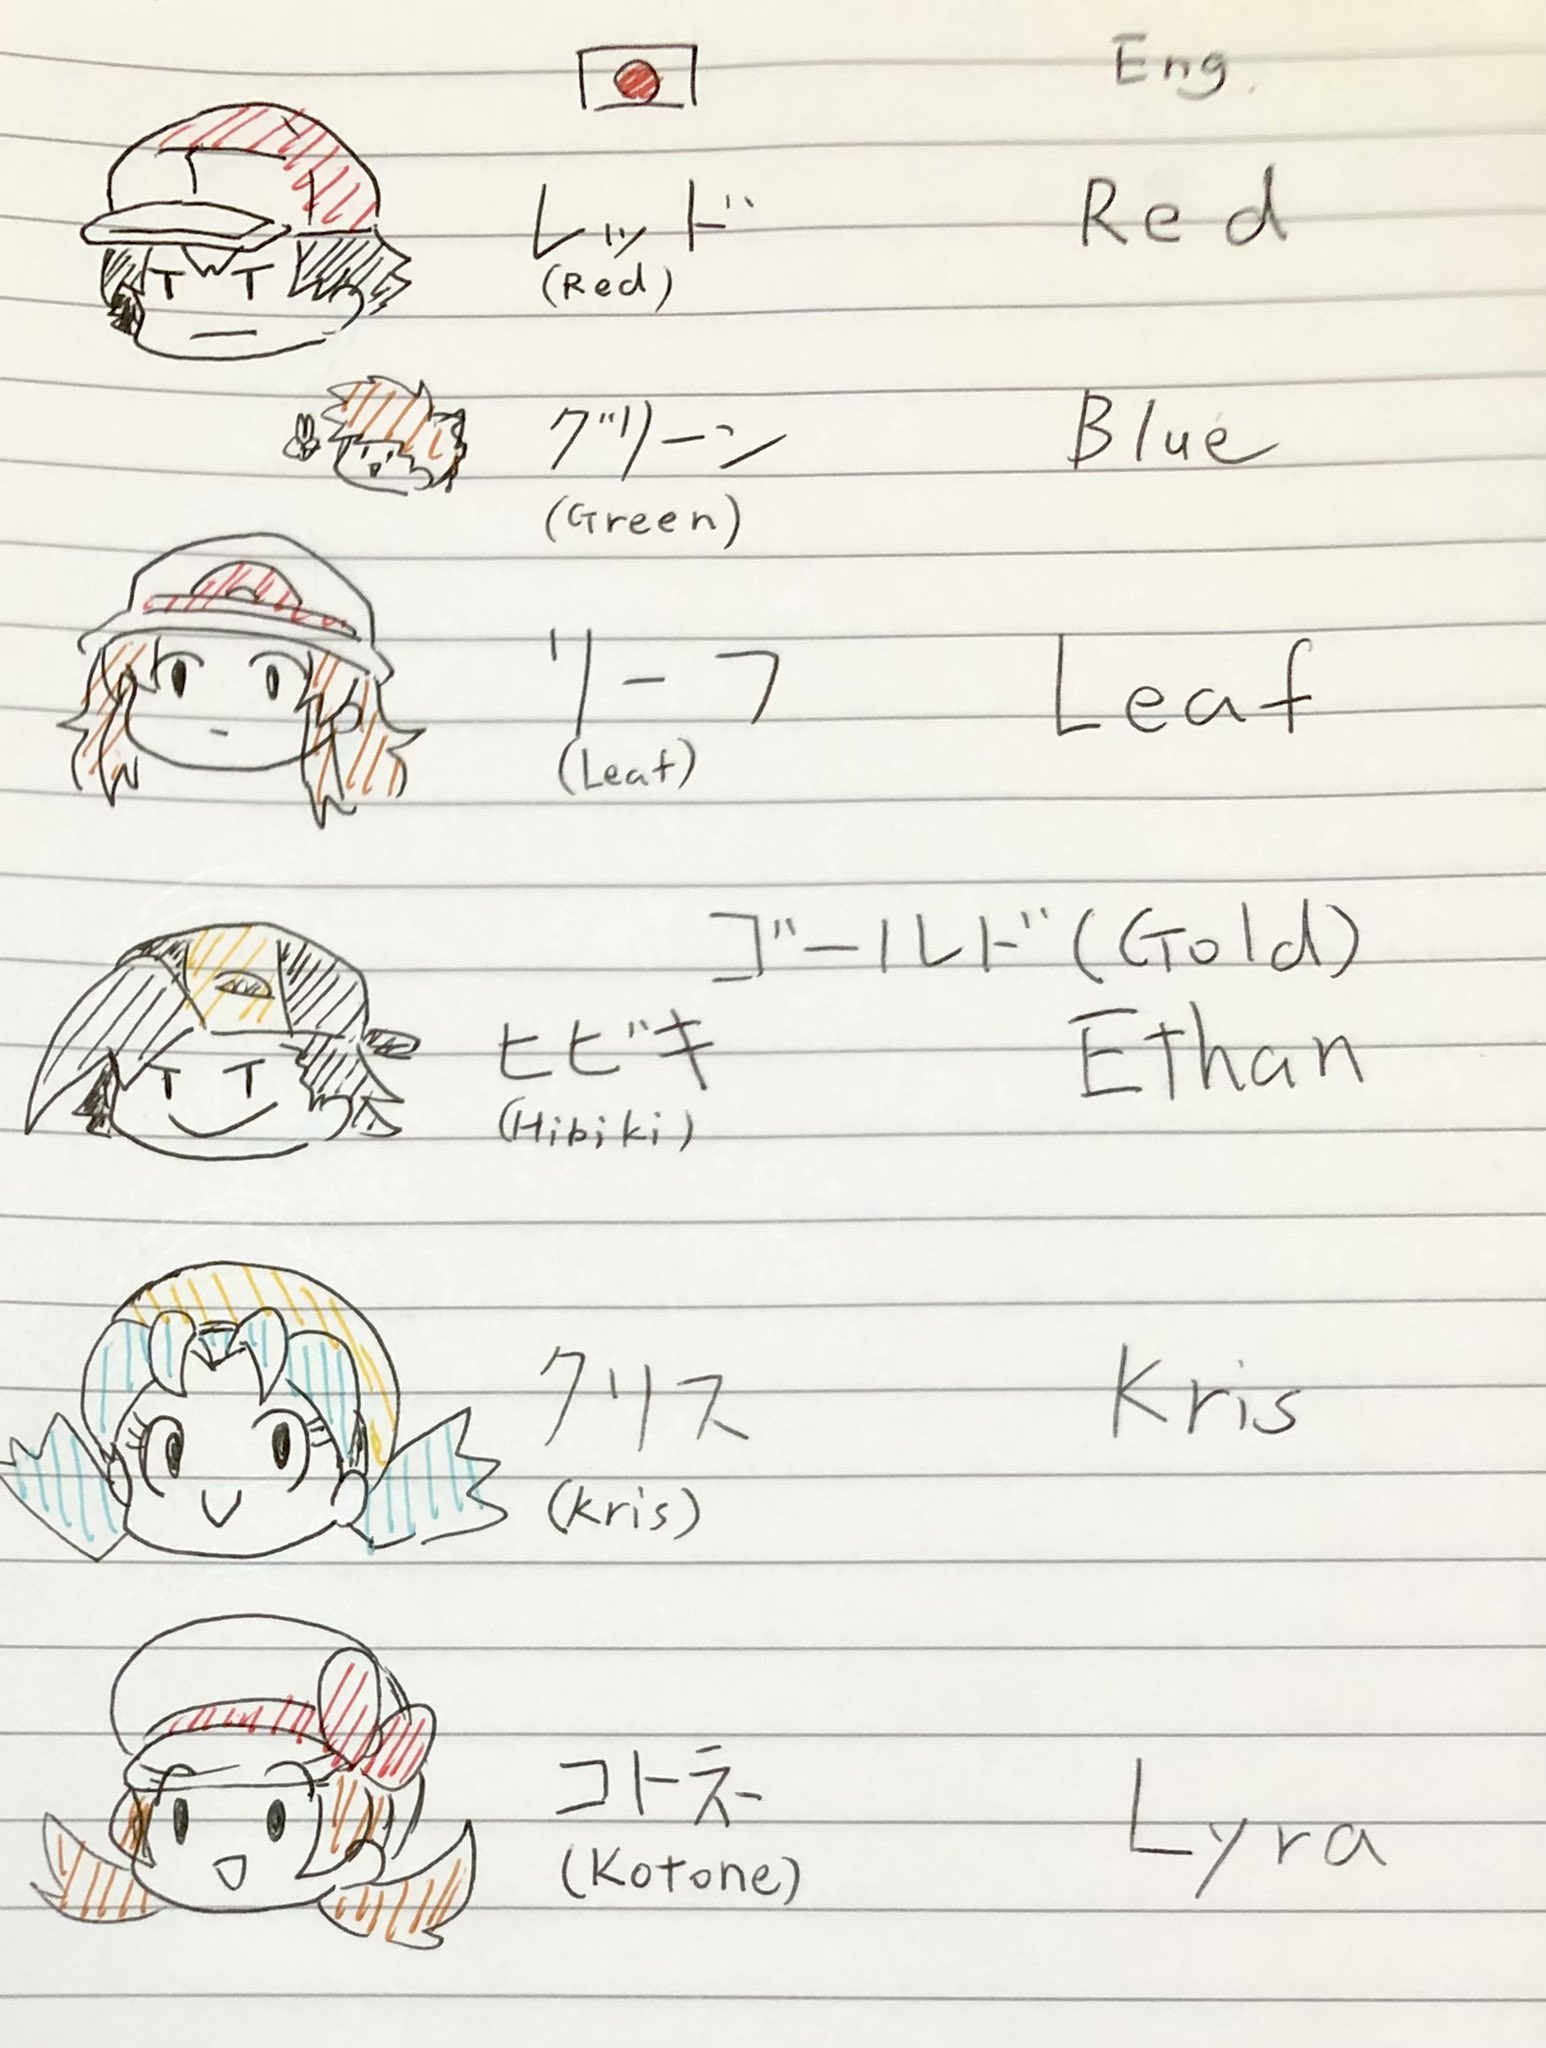 Eng.
レッド Red
(Red)
グリーン Blue
(Green)
リーフ Leaf
(Leaf)
ゴールド (Gold)
ヒビキ Ethan
(Hibiki)
クリス Kris
(Kris)
コトネ Lyra
(Kotone)